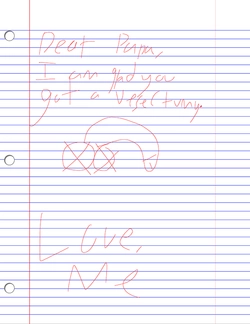 Dear Papa,
I am glad you
got a Vesectumy.
Love,
Me